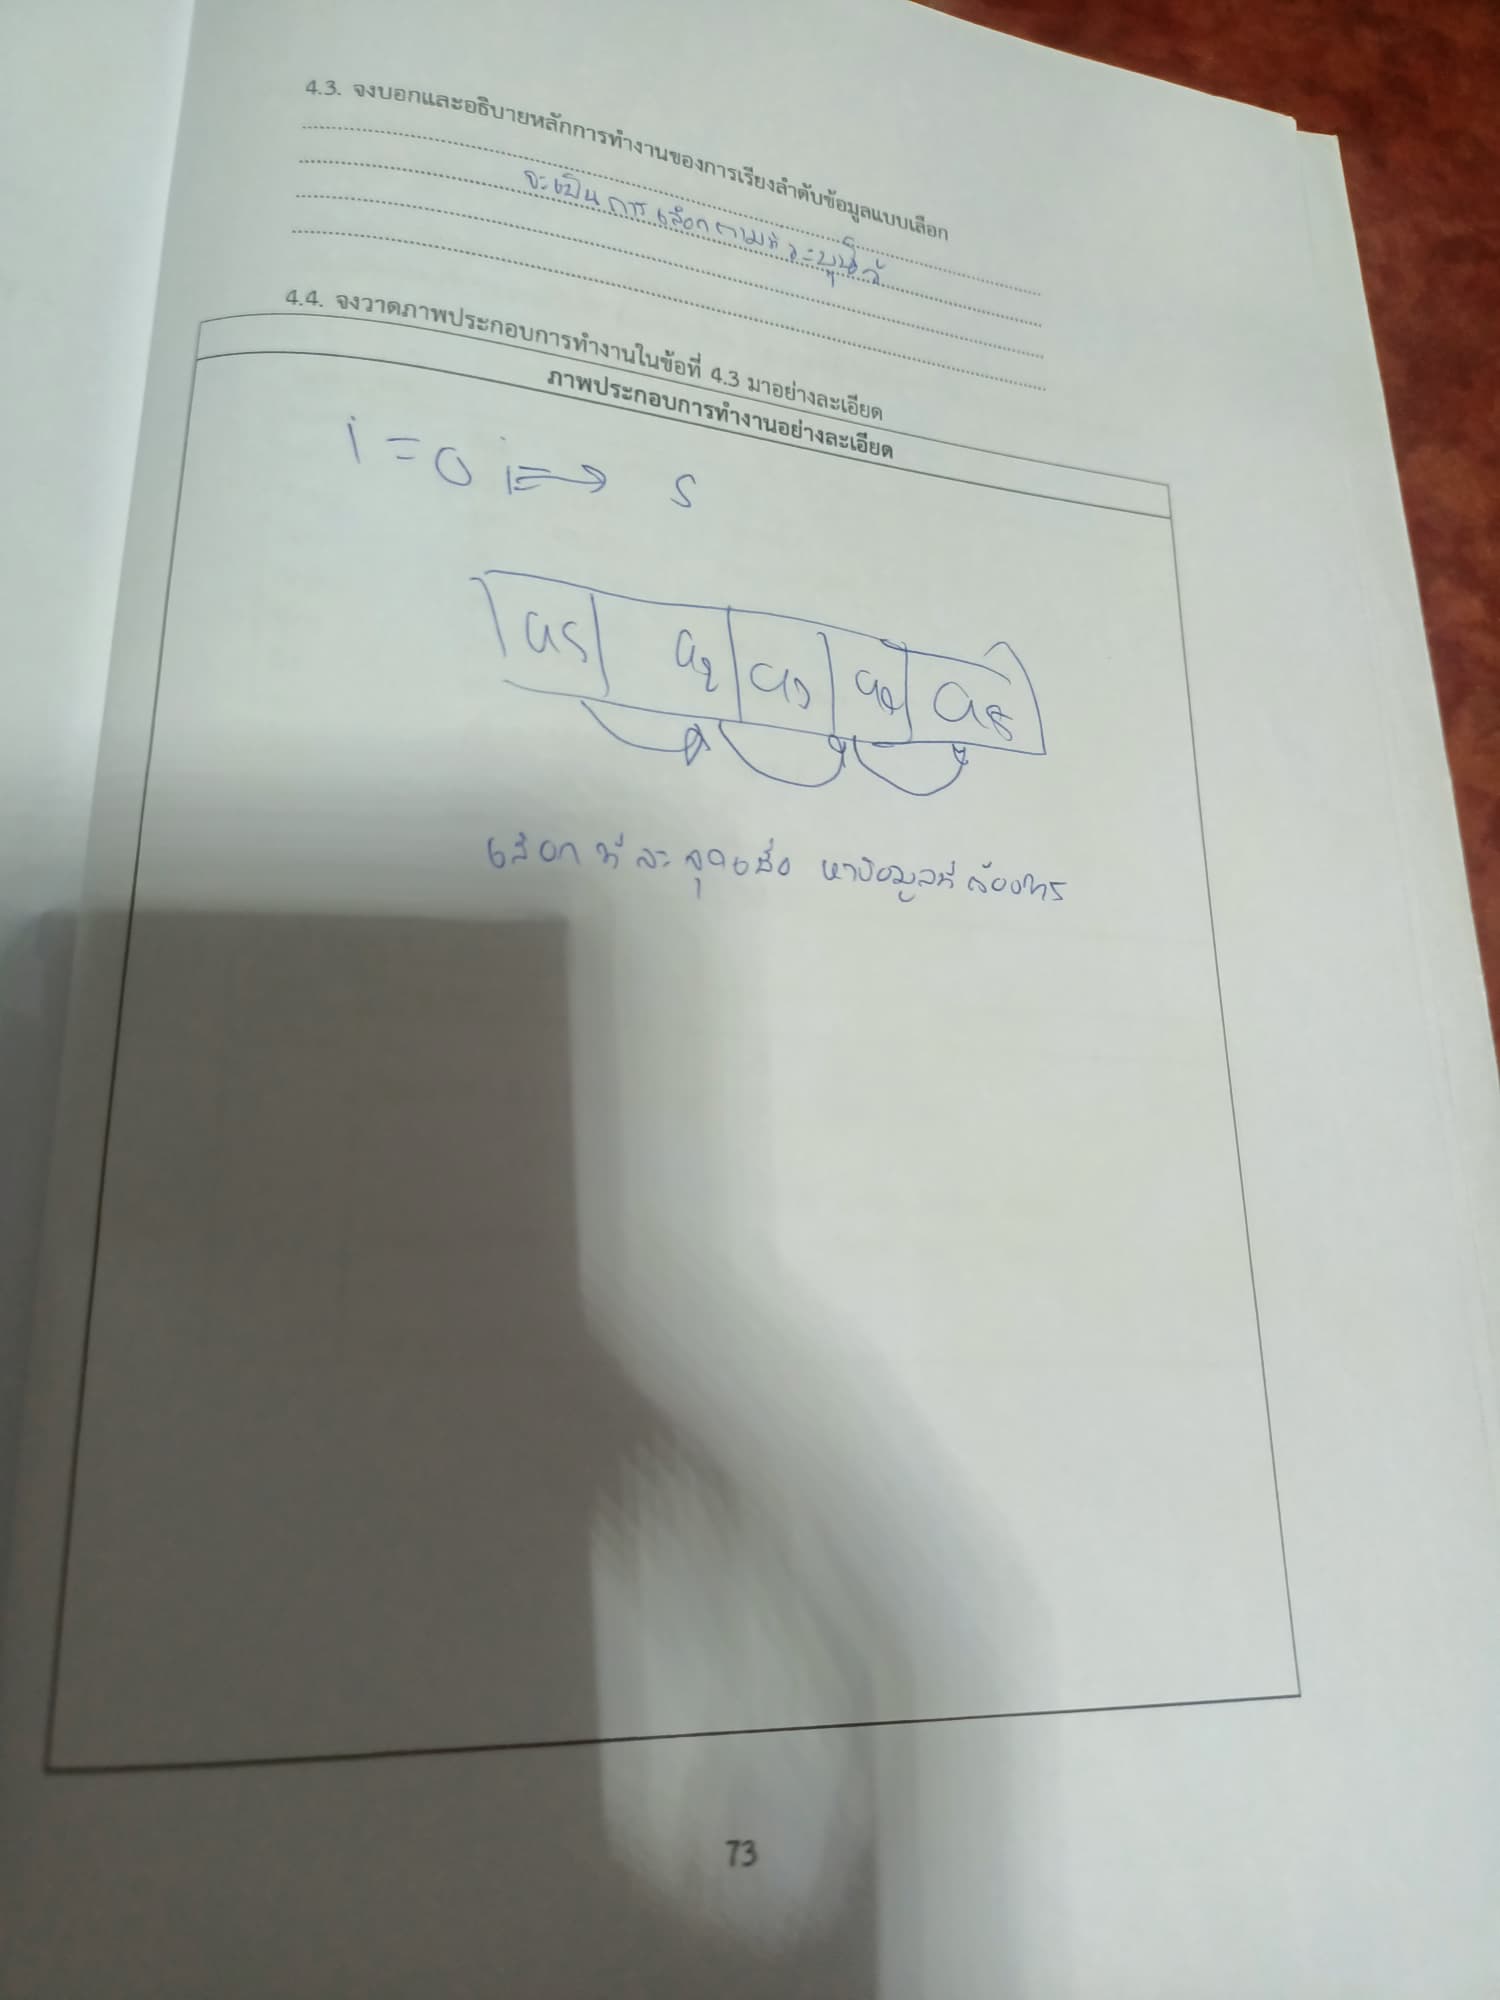 4.3. จงบอกและอธิบายหลักการทำงานของการเรียงลำดับข้อมูลแบบเลือก
จะเป็นการเลือกตามที่ระบุ
4.4. จงวาดภาพประกอบการทำงานในข้อที่ 4.3 มาอย่างละเอียด
ภาพประกอบการทำงานอย่างละเอียด
i = 0 i = → 5
a5 a2 a3 a8
เลือกทีละจุดเพื่อ หาข้อมูลที่ต้องการ
73